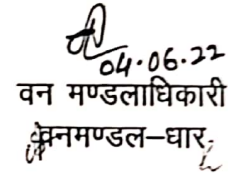 04.06.22
वन मण्डलाधिकारी
वनमण्डल-धार